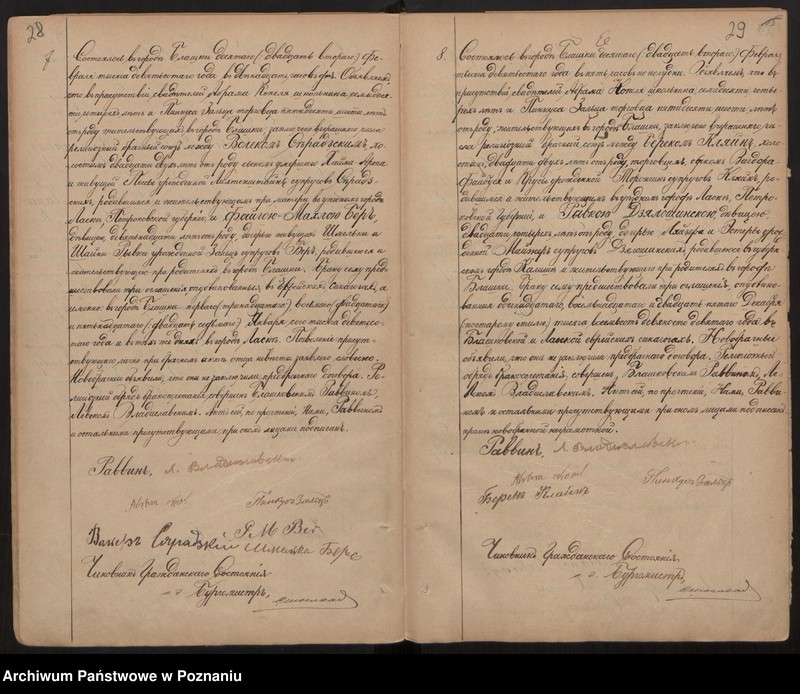 28
7.
Состоялось въ городѣ Блашки десятаго (двадцать втораго) Фе-
враля тысяча девятьсотаго года въ часовъ. Объявляемъ
что въ присутствіи свидѣтелей Абрама Копеля школьника, семидеся-
ти четырехъ лѣтъ и Пинкуса Зальца торговца пятидесяти шести лѣтъ
отъ роду, жительствующихъ въ городѣ Блашки, заключено вчерашняго числа
религіозный брачный союзъ между Волекомъ Серадзскимъ, хо-
лостымъ двадцати двухъ лѣтъ отъ роду, сыномъ Хаима
и живущей урожденной супруговъ Серадз-
скихъ, родившимся и жительствующимъ при матери въ уѣздномъ городѣ
Ласкъ, Петроковской губерніи, и Файгою-Махлою Беръ,
дѣвицею, девятнадцати лѣтъ отъ роду, дочерью живущихъ Шмелки и
Шайны Рывки урожденной Зальцъ супруговъ Беръ, родившеюся и
жительствующею при родителяхъ въ городѣ Блашки. Браку сему пред-
шествовали три оглашенія опубликованныя въ Еврейскихъ синагогахъ, а
именно: въ городѣ Блашки перваго (тринадцатаго), восьмаго (двадцатаго)
и пятнадцатаго (двадцать седьмаго) Января сего тысяча девятьсо-
таго года и въ тѣхъ же дняхъ въ городѣ Ласкъ. Позволеніе присут-
ствующаго лично при брачномъ актѣ отца невѣсты заявлено словесно.
Новобрачные объявили, что они не заключили предбрачнаго договора. Ре-
лигіозный обрядъ бракосочетанія совершенъ Блашковскимъ Раввиномъ,
Лейкомъ Владиславскимъ. Актъ сей, по прочтеніи, Нами, Раввиномъ
и остальными присутствующими при ономъ лицами подписанъ.
Раввинъ, Л. Владиславский
Пинкусъ Зальцъ
Волекъ Серадзкій Шмелка Беръ
Чиновникъ Гражданскаго Состоянія
Бургомистръ,
29
8.
Состоялось въ городѣ Блашки десятаго (двадцать втораго) Февра-
ля тысяча девятьсотаго года въ пять часовъ по полудни. Объявляемъ что въ
присутствіи свидѣтелей Абрама Копеля школьника, семидесяти четы-
рехъ лѣтъ и Пинкуса Зальца торговца пятидесяти шести лѣтъ
отъ роду, жительствующихъ въ городѣ Блашки, заключено вчерашняго чи-
сла религіозный брачный союзъ между Берекомъ Кляйнъ, холо-
стымъ, двадцати двухъ лѣтъ отъ роду, торговцемъ, сыномъ
и урожденной супруговъ Кляйнъ, ро-
дившимся и жительствующимъ въ уѣздномъ городѣ Ласкъ, Петро-
ковской Губерніи, и Ривкою Дзялошинскою, дѣвицею,
двадцати четырехъ лѣтъ отъ роду, дочерью и Эстеры урож-
денной супруговъ Дзялошинскихъ, родившеюся въ губерн-
скомъ городѣ Калишъ и жительствующею при родителяхъ въ городѣ
Блашки. Браку сему предшествовали три оглашенія, опублико-
ванныя одиннадцатаго, восемнадцатаго и двадцать пятаго Декабря
(по старому стилю) тысяча восемьсотъ девяносто девятаго года, въ
Блашковской и Ласкской еврейскихъ синагогахъ. Новобрачные
объявили, что они не заключили предбрачнаго договора. Религіозный
обрядъ бракосочетанія совершенъ Блашковскимъ Раввиномъ, Ле-
йкомъ Владиславскимъ. Актъ сей, по прочтеніи, Нами, Равви-
номъ и остальными присутствующими при ономъ лицами подписанъ
кромѣ новобрачной неграмотной.
Раввинъ, Л. Владиславский
Пинкусъ Зальцъ
Берекъ Кляйнъ
Чиновникъ Гражданскаго Состоянія,
Бургомистръ,
Archiwum Państwowe w Poznaniu